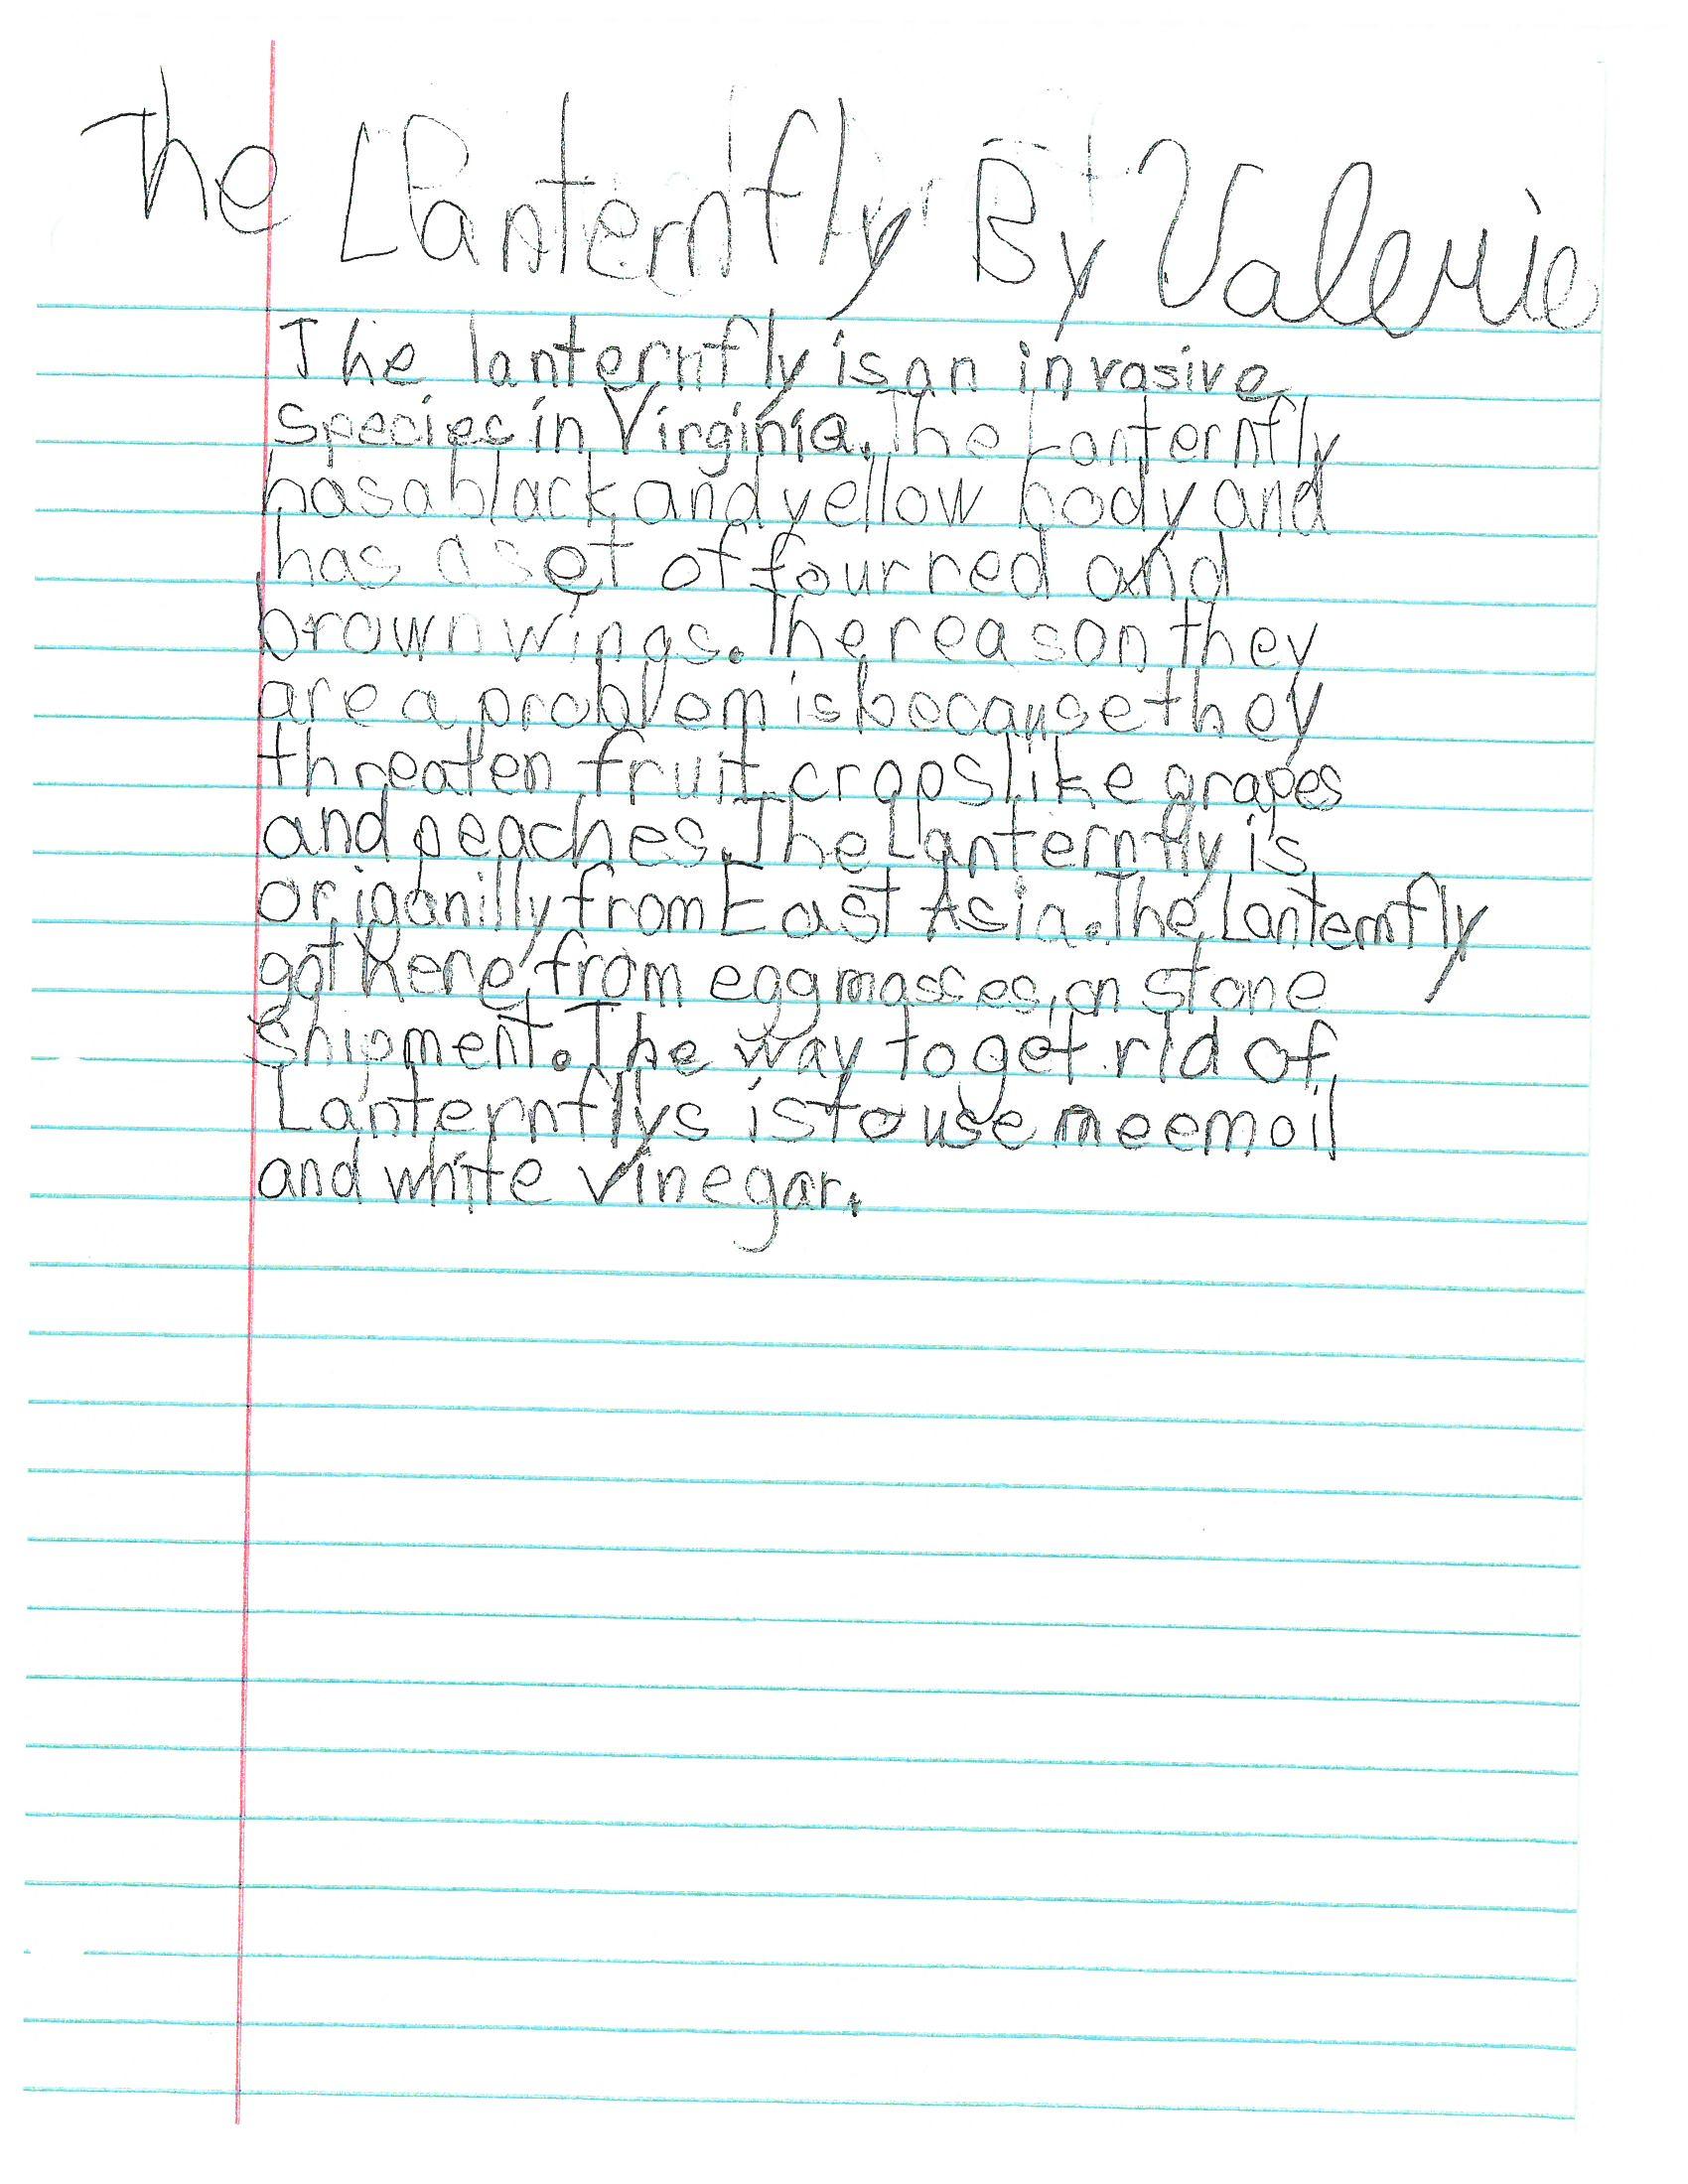 The Lanternfly By Valerie
The lanternfly is an invasive
species in Virginia. The Lanternfly
has a black and yellow body and
has a set of four red and
brown wings. The reason they
are a problem is because they
threaten fruit crops like grapes
and peaches. The Lanternfly is
origanilly from East Asia. The Lanternfly
got here from egg masses, on stone
shipment. The way to get rid of
Lanternflys is to use meem oil
and white vinegar.